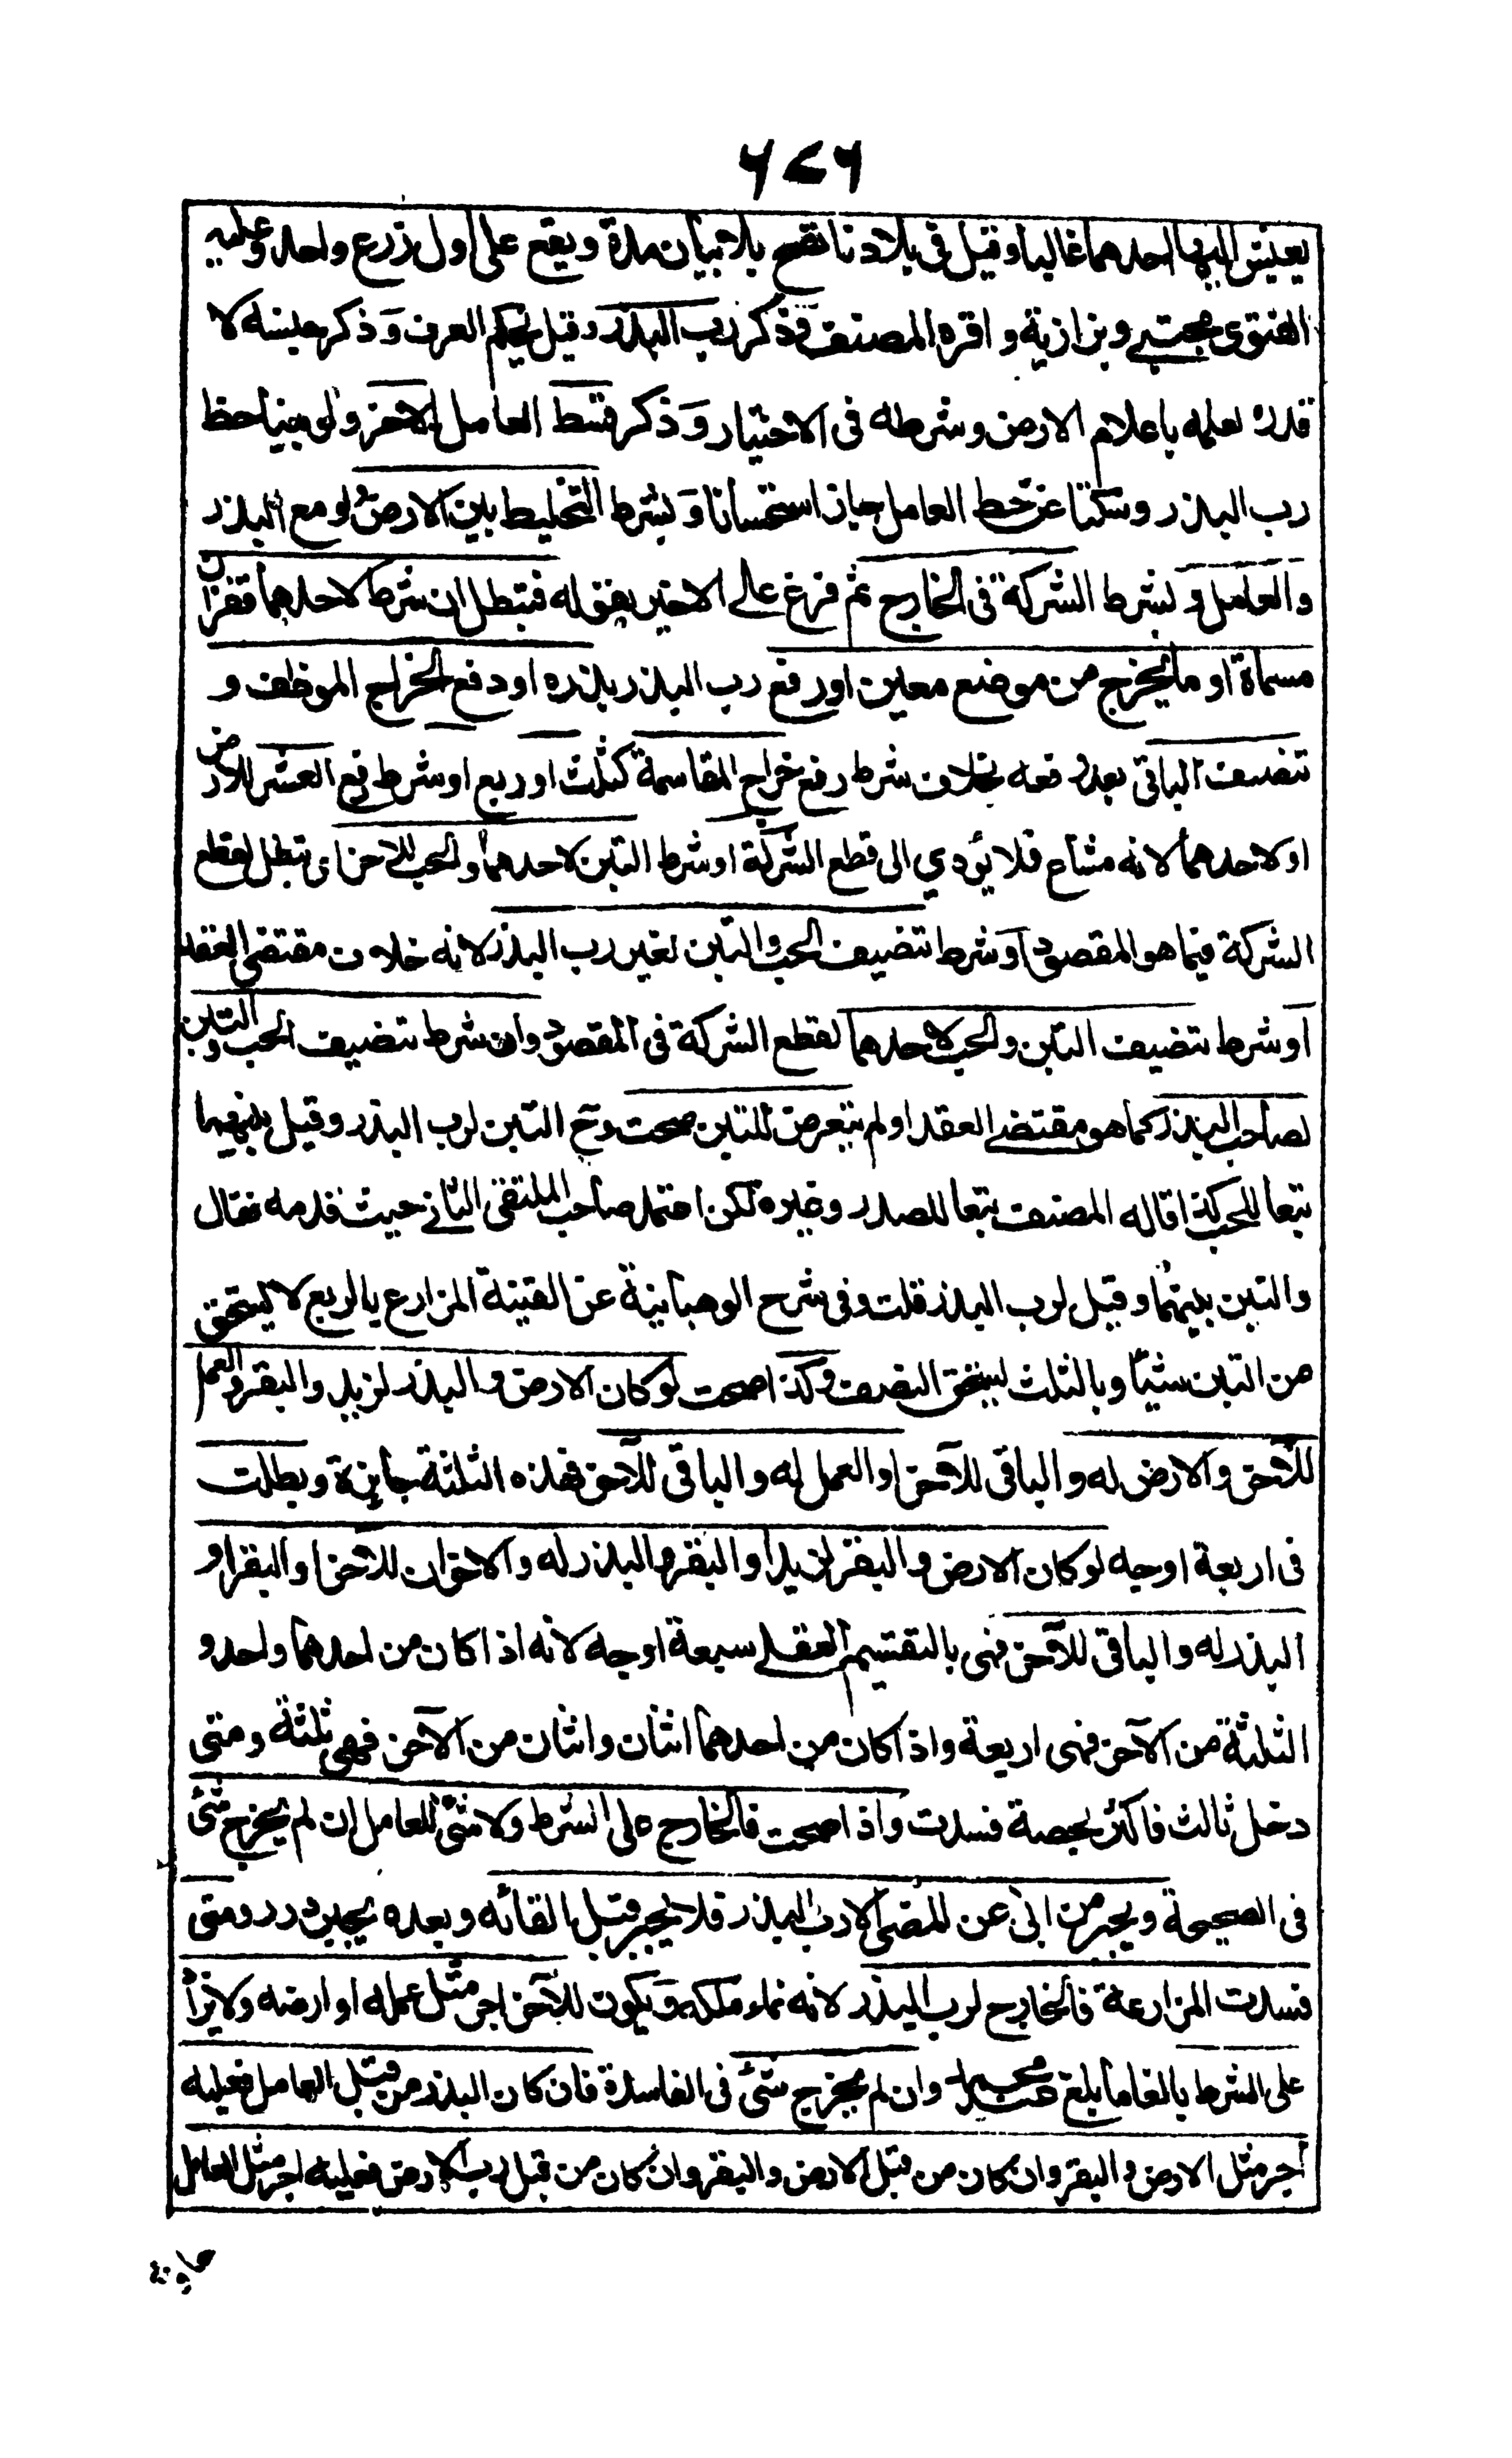 ٦٧٦
يعيش اليها احدهما غالبا وقيل في بلادنا تصح بلا بيان مدة ويقع على اول زرع واحد وعليه
الفتوى مجتبى وبزازية واقره المصنف وذكر رب البذر وقيل يحكم العرف وذكر جنسه لا
قدره لعلمه باعلام الارض وشرطه في الاختيار وذكر قسط العامل الاخر ولو بينا حظ
رب البذر وسكتا عن حظ العامل جاز استحسانا وبشرط التخلية بين الارض ولو مع البذر
والعامل وبشرط الشركة في الخارج ثم فرع على الاخير بقوله فتبطل ان شرط لاحدهما قفزان
مسماة او ما يخرج من موضع معين او رفع رب البذر بذره او دفع الخراج الموظف و
تنصيف الباقي بعد رفعه بخلاف شرط رفع خراج المقاسمة كثلث او ربع او شرط رفع العشر للارض
او لاحدهما لانه مشاع فلا يؤدي الى قطع الشركة او شرط التبن لاحدهما والحب للاخر اى تبطل لقطع
الشركة فيما هو المقصود او شرط تنصيف الحب والتبن لغير رب البذر لانه خلاف مقتضى العقد
او شرط تنصيف التبن والحب لاحدهما لقطع الشركة في المقصود وان شرط تنصيف الحب والتبن
لصاحب البذر كما هو مقتضى العقد او لم يتعرض للتبن صحت وح التبن لرب البذر وقيل بينهما
تبعا للحب كذا قاله المصنف تبعا للصدر وغيره لكن اعتمد صاحب الملتقى الثاني حيث قدمه فقال
والتبن بينهما وقيل لرب البذر قلت وفي شرح الوهبانية عن القنية المزارع بالربع لا يستحق
من التبن شيئا وبالثلث يستحق النصف وكذا صحت لو كان الارض والبذر لزيد والبقر والعمل
للآخر والارض له والباقي للآخر او العمل له والباقي للآخر فهذه الثلثة جايزة وبطلت
في اربعة اوجه لو كان الارض والبقر لزيد او البقر والبذر له والاخران للاخر او البقر او
البذر له والباقي للآخر فهى بالتقسيم العقلى سبعة اوجه لانه اذا كان من احدهما واحد و
الثلثة من الآخر فهى اربعة واذا كان من احدهما اثنان واثنان من الآخر فهى ثلثة ومتى
دخل ثالث فاكثر بحصة فسدت واذا صحت فالخارج على الشرط ولا شئ للعامل ان لم يخرج شئ
في الصحيحة ويجبر من ابى عن المضى الا رب البذر فلا يجبر قبل القائه وبعده يجبر درر ومتى
فسدت المزارعة فالخارج لرب البذر لانه نماء ملكه ويكون للآخر اجر مثل عمله او ارضه ولا يزاد
على الشرط بالغا ما بلغ عند محمد وان لم يخرج شئ في الفاسدة فان كان البذر من قبل العامل فعليه
اجر مثل الارض والبقر وان كان من قبل الارض والبقر وان كان من قبل رب الارض فعليه اجر مثل العامل